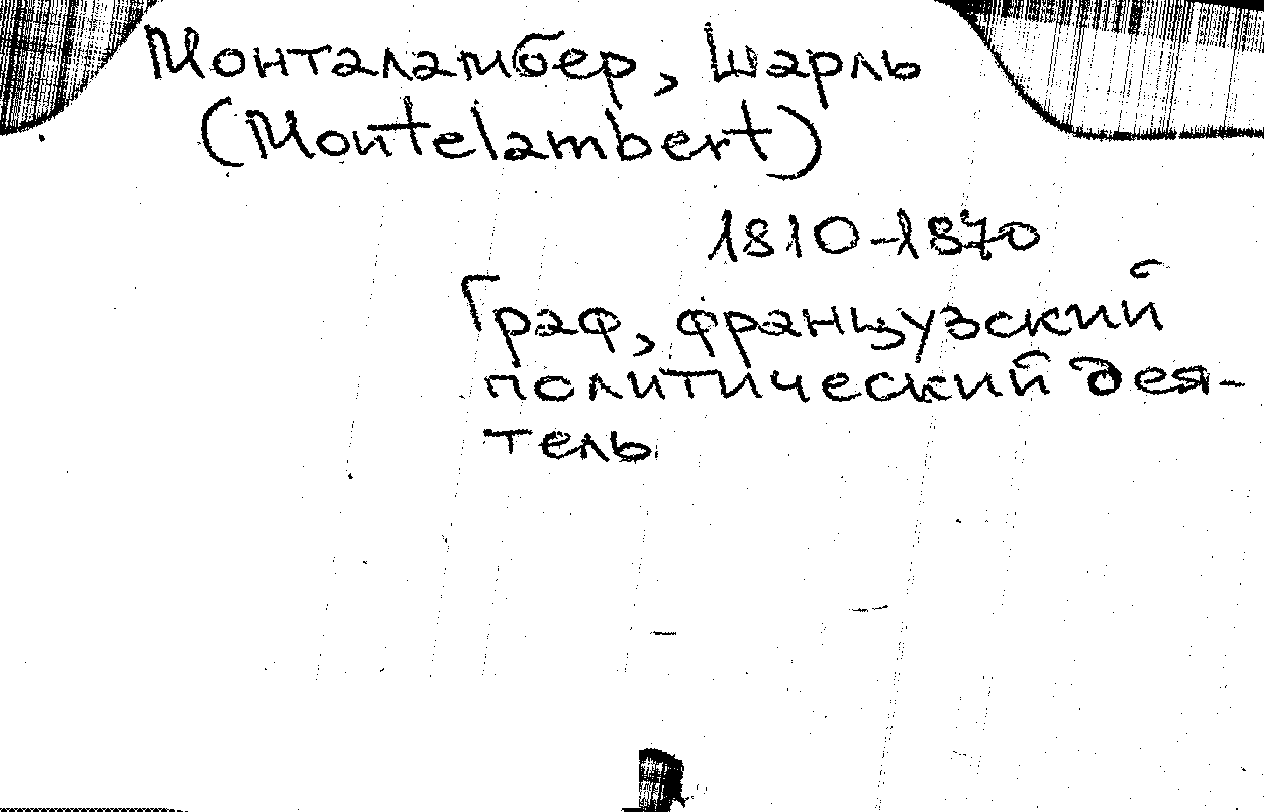 Монталамбер, Шарль
(Montelambert)
1810-1870
Граф, французский
политический дея-
тель